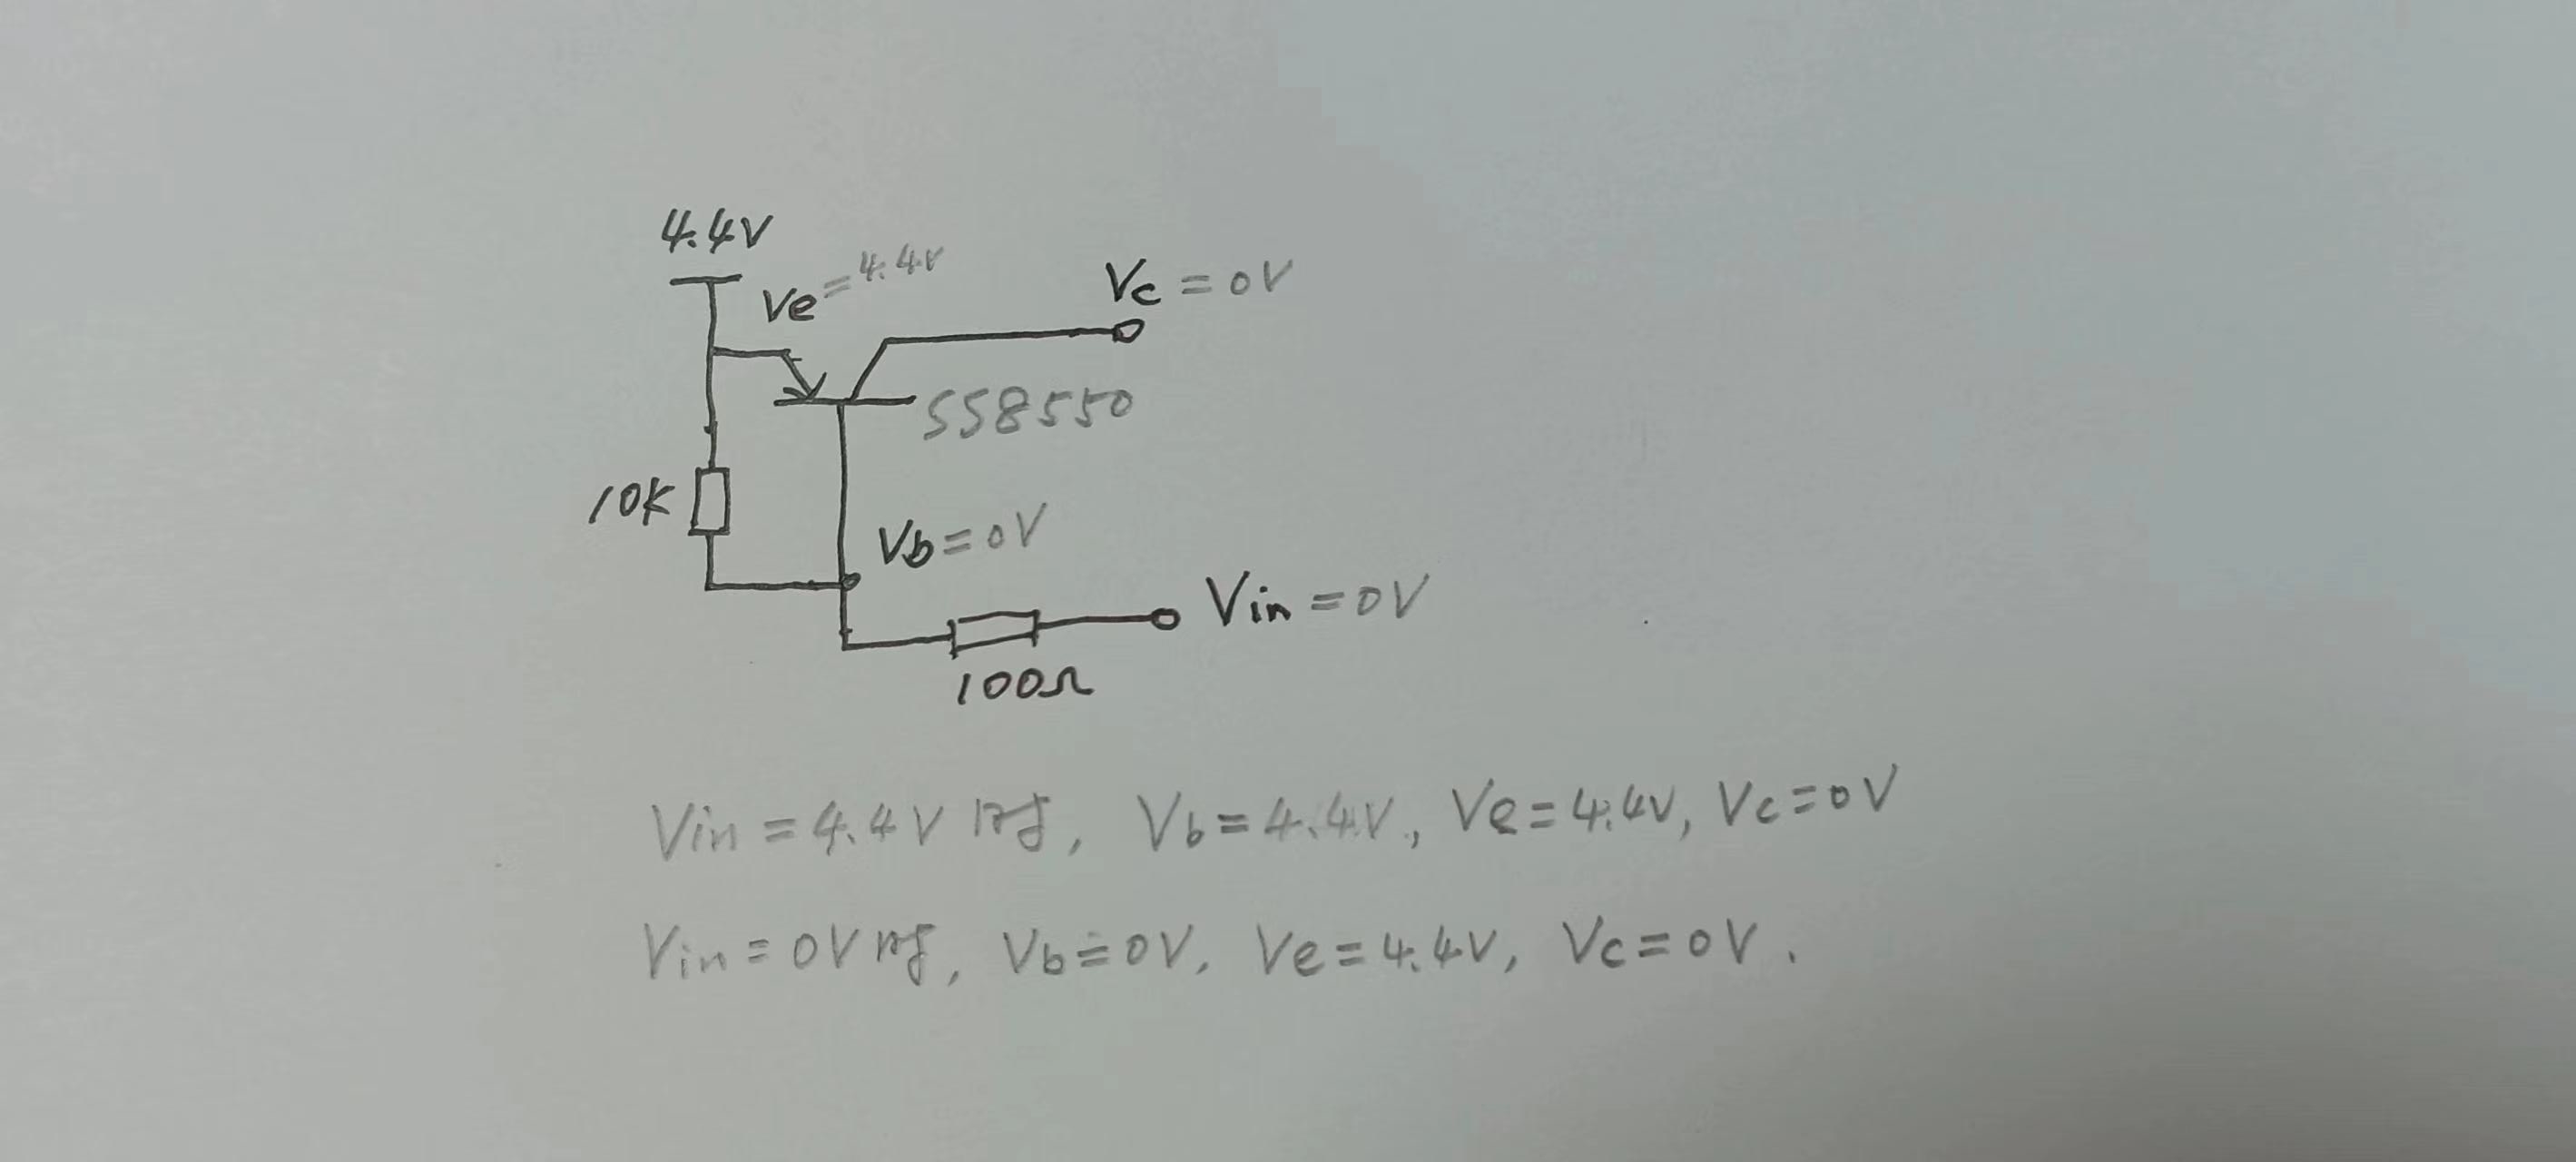 4.4V
Ve=4.4V
Vc=0V
SS8550
10K
Vb=0V
Vin=0V
100Ω
Vin=4.4V时, Vb=4.4V, Ve=4.4V, Vc=0V
Vin=0V时, Vb=0V, Ve=4.4V, Vc=0V.